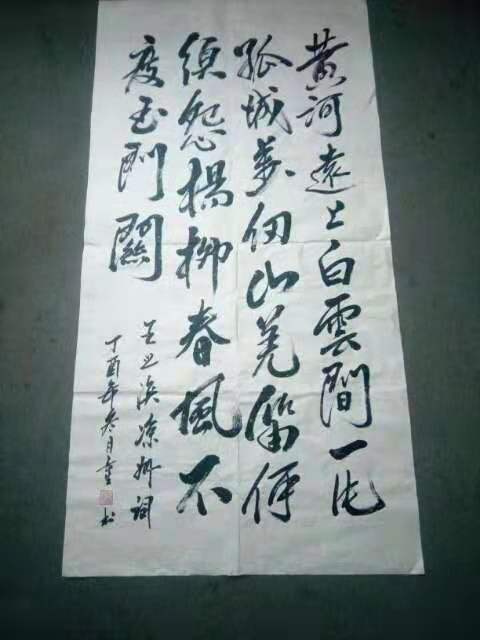 黄河遠上白雲間一片
孤城萬仞山羌笛何
須怨楊柳春風不
度玉門關
王之渙涼州詞
丁酉年冬月書